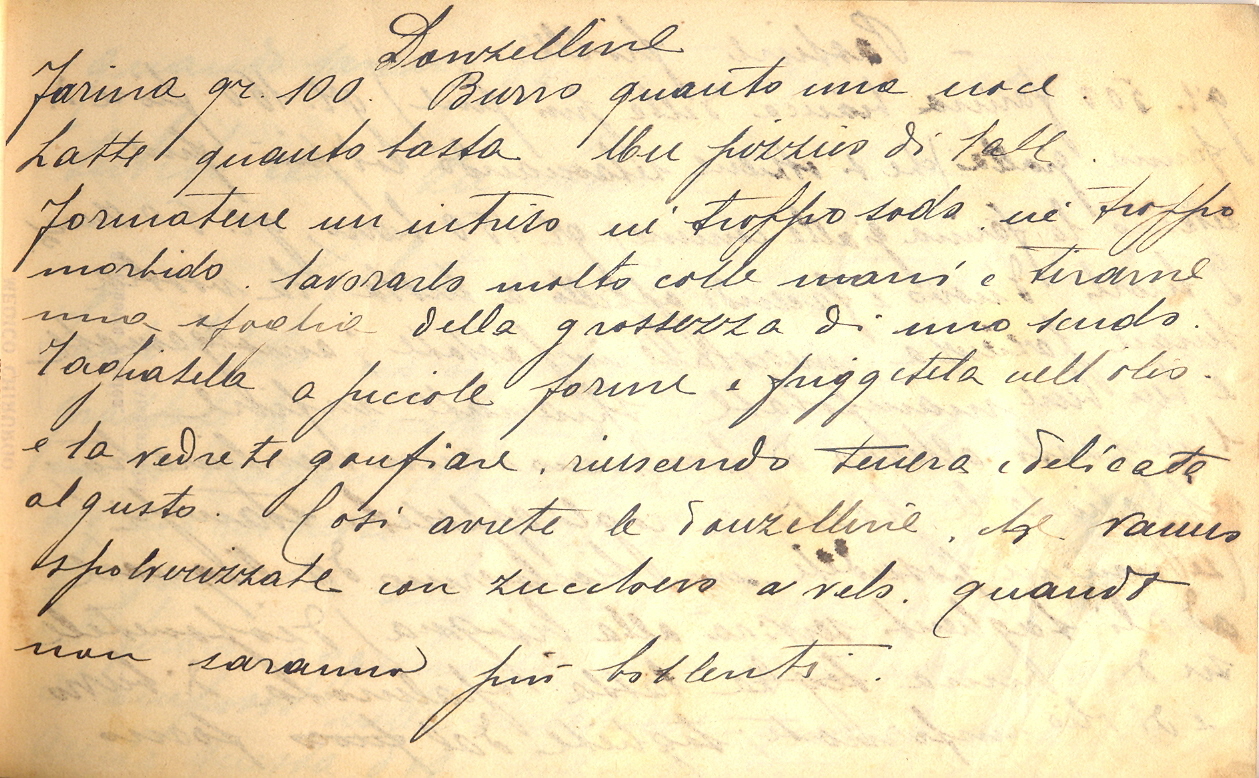 Donzelline
Farina gr. 100. Burro quanto una noce
Latte quanto basta Un pizzico di sale.
Formatene un intriso nè troppo sodo nè troppo
morbido. lavorarlo molto colle mani e tirarne
una sfoglia della grossezza di uno scudo.
Tagliatela a piccole forme e friggetela nell'olio.
e la vedrete gonfiare, riuscendo tenera e delicata
al gusto. Così avrete le donzelline, che vanno
spolverizzate con zucchero a velo. quando
non saranno più bollenti.